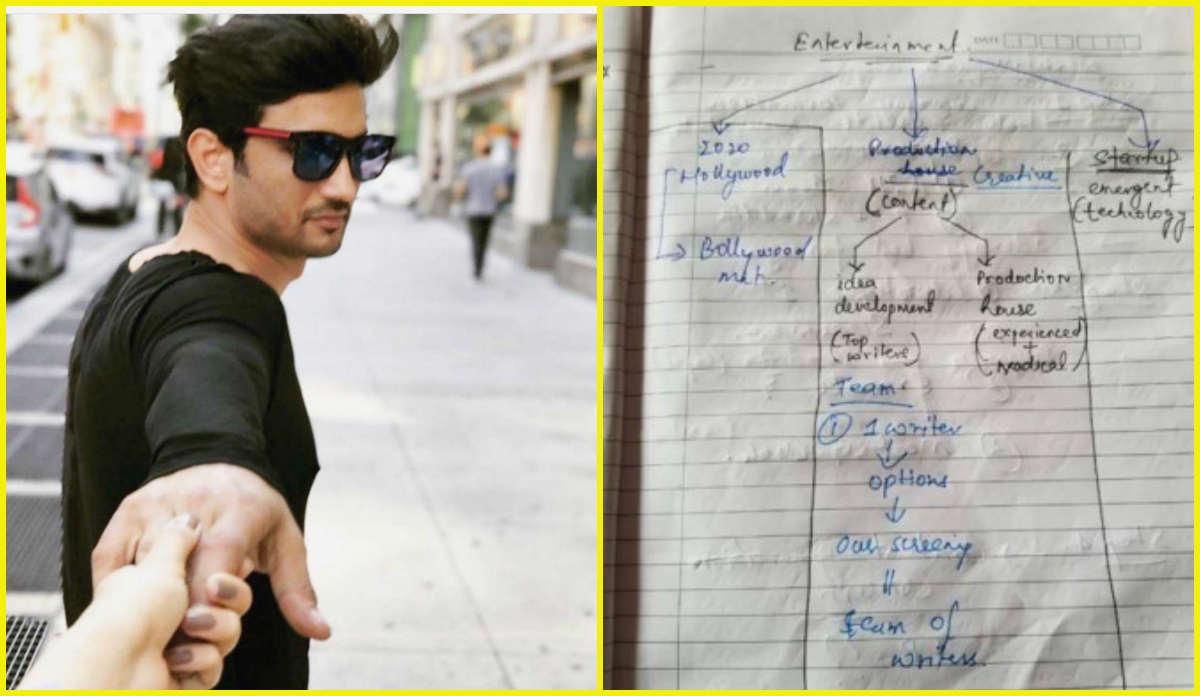 Entertainment.
DATE
2020
Hollywood
Bollywood
mkt.
Production
house
Creative
(Content)
idea
development
(Top
writers)
Production
house
(experienced
+
radical)
Team
① 1 writer
options
Our screening
Team of
writers.
Startup
emergent
(techiology)